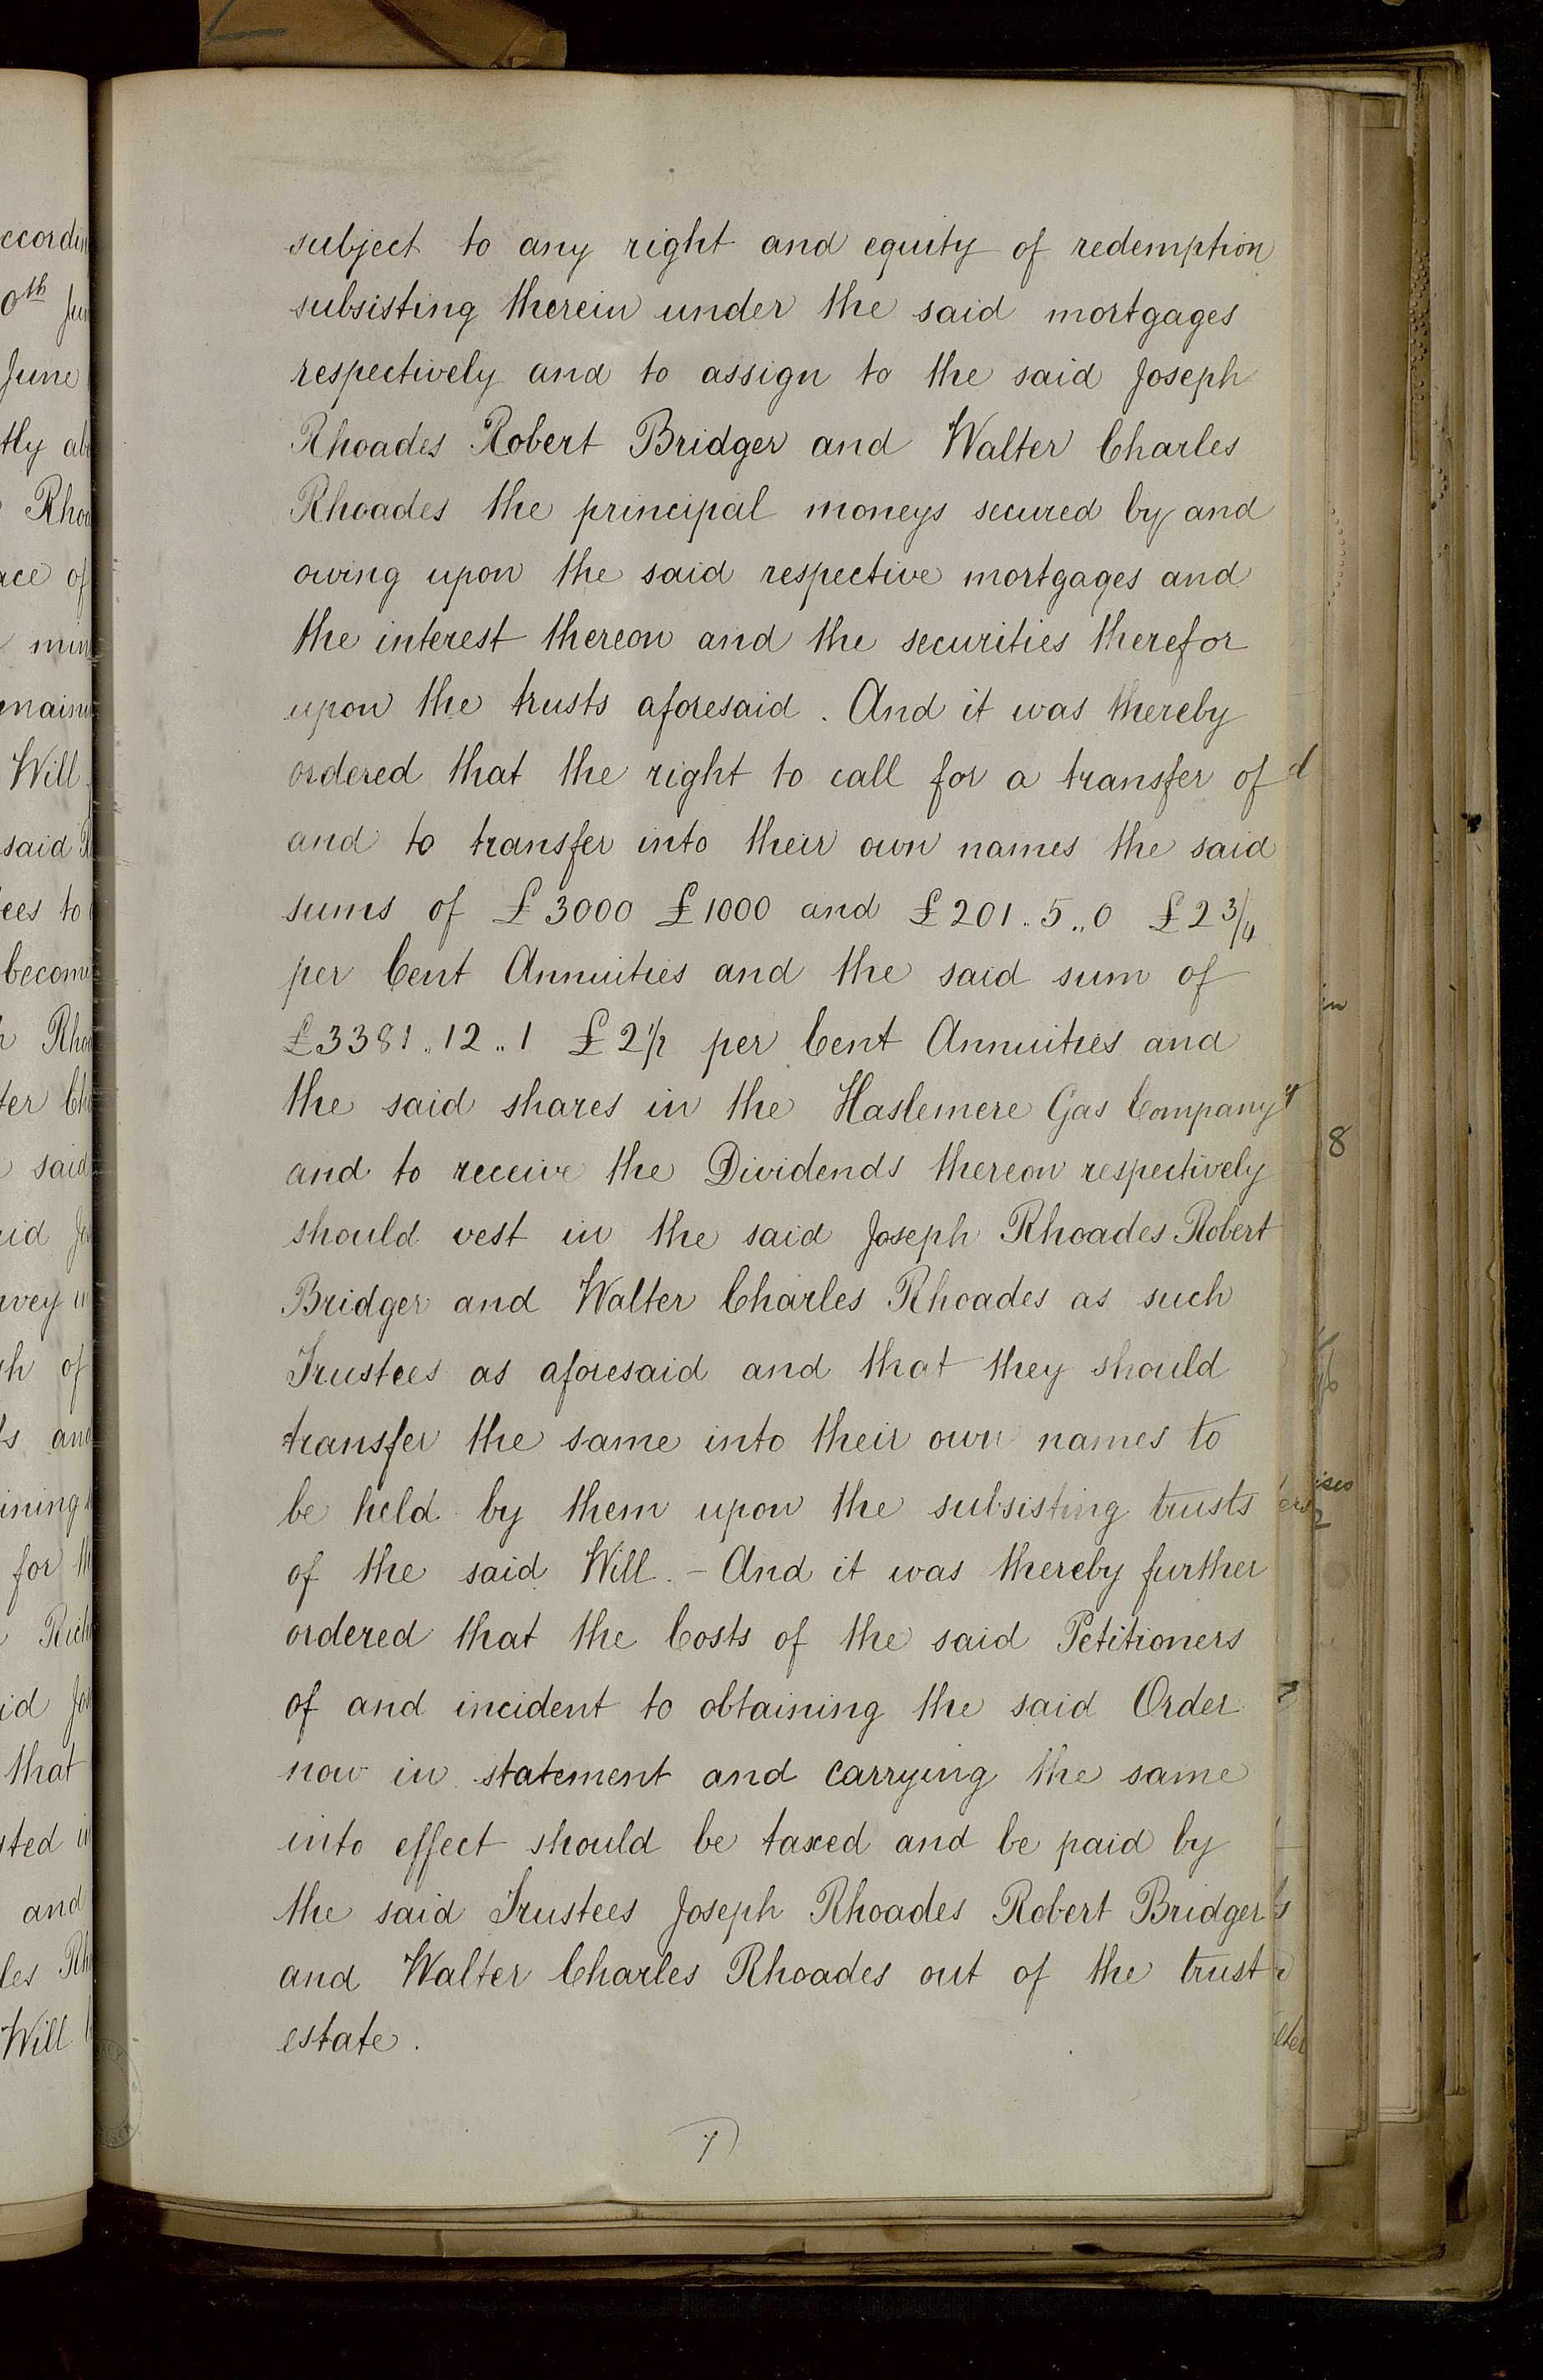 subject to any right and equity of redemption
subsisting therein under the said mortgages
respectively and to assign to the said Joseph
Rhoades Robert Bridger and Walter Charles
Rhoades the principal moneys secured by and
owing upon the said respective mortgages and
the interest thereon and the securities therefor
upon the trusts aforesaid. And it was thereby
ordered that the right to call for a transfer of
and to transfer into their own names the said
sums of £3000 £1000 and £201..5..0 £2 3/4
per Cent Annuities and the said sum of
£3381..12..1 £2 1/2 per Cent Annuities and
the said shares in the Haslemere Gas Company
and to receive the Dividends thereon respectively
should vest in the said Joseph Rhoades Robert
Bridger and Walter Charles Rhoades as such
Trustees as aforesaid and that they should
transfer the same into their own names to
be held by them upon the subsisting trusts
of the said Will. - And it was thereby further
ordered that the Costs of the said Petitioners
of and incident to obtaining the said Order
now in statement and carrying the same
into effect should be taxed and be paid by
the said Trustees Joseph Rhoades Robert Bridger
and Walter Charles Rhoades out of the trust
estate.